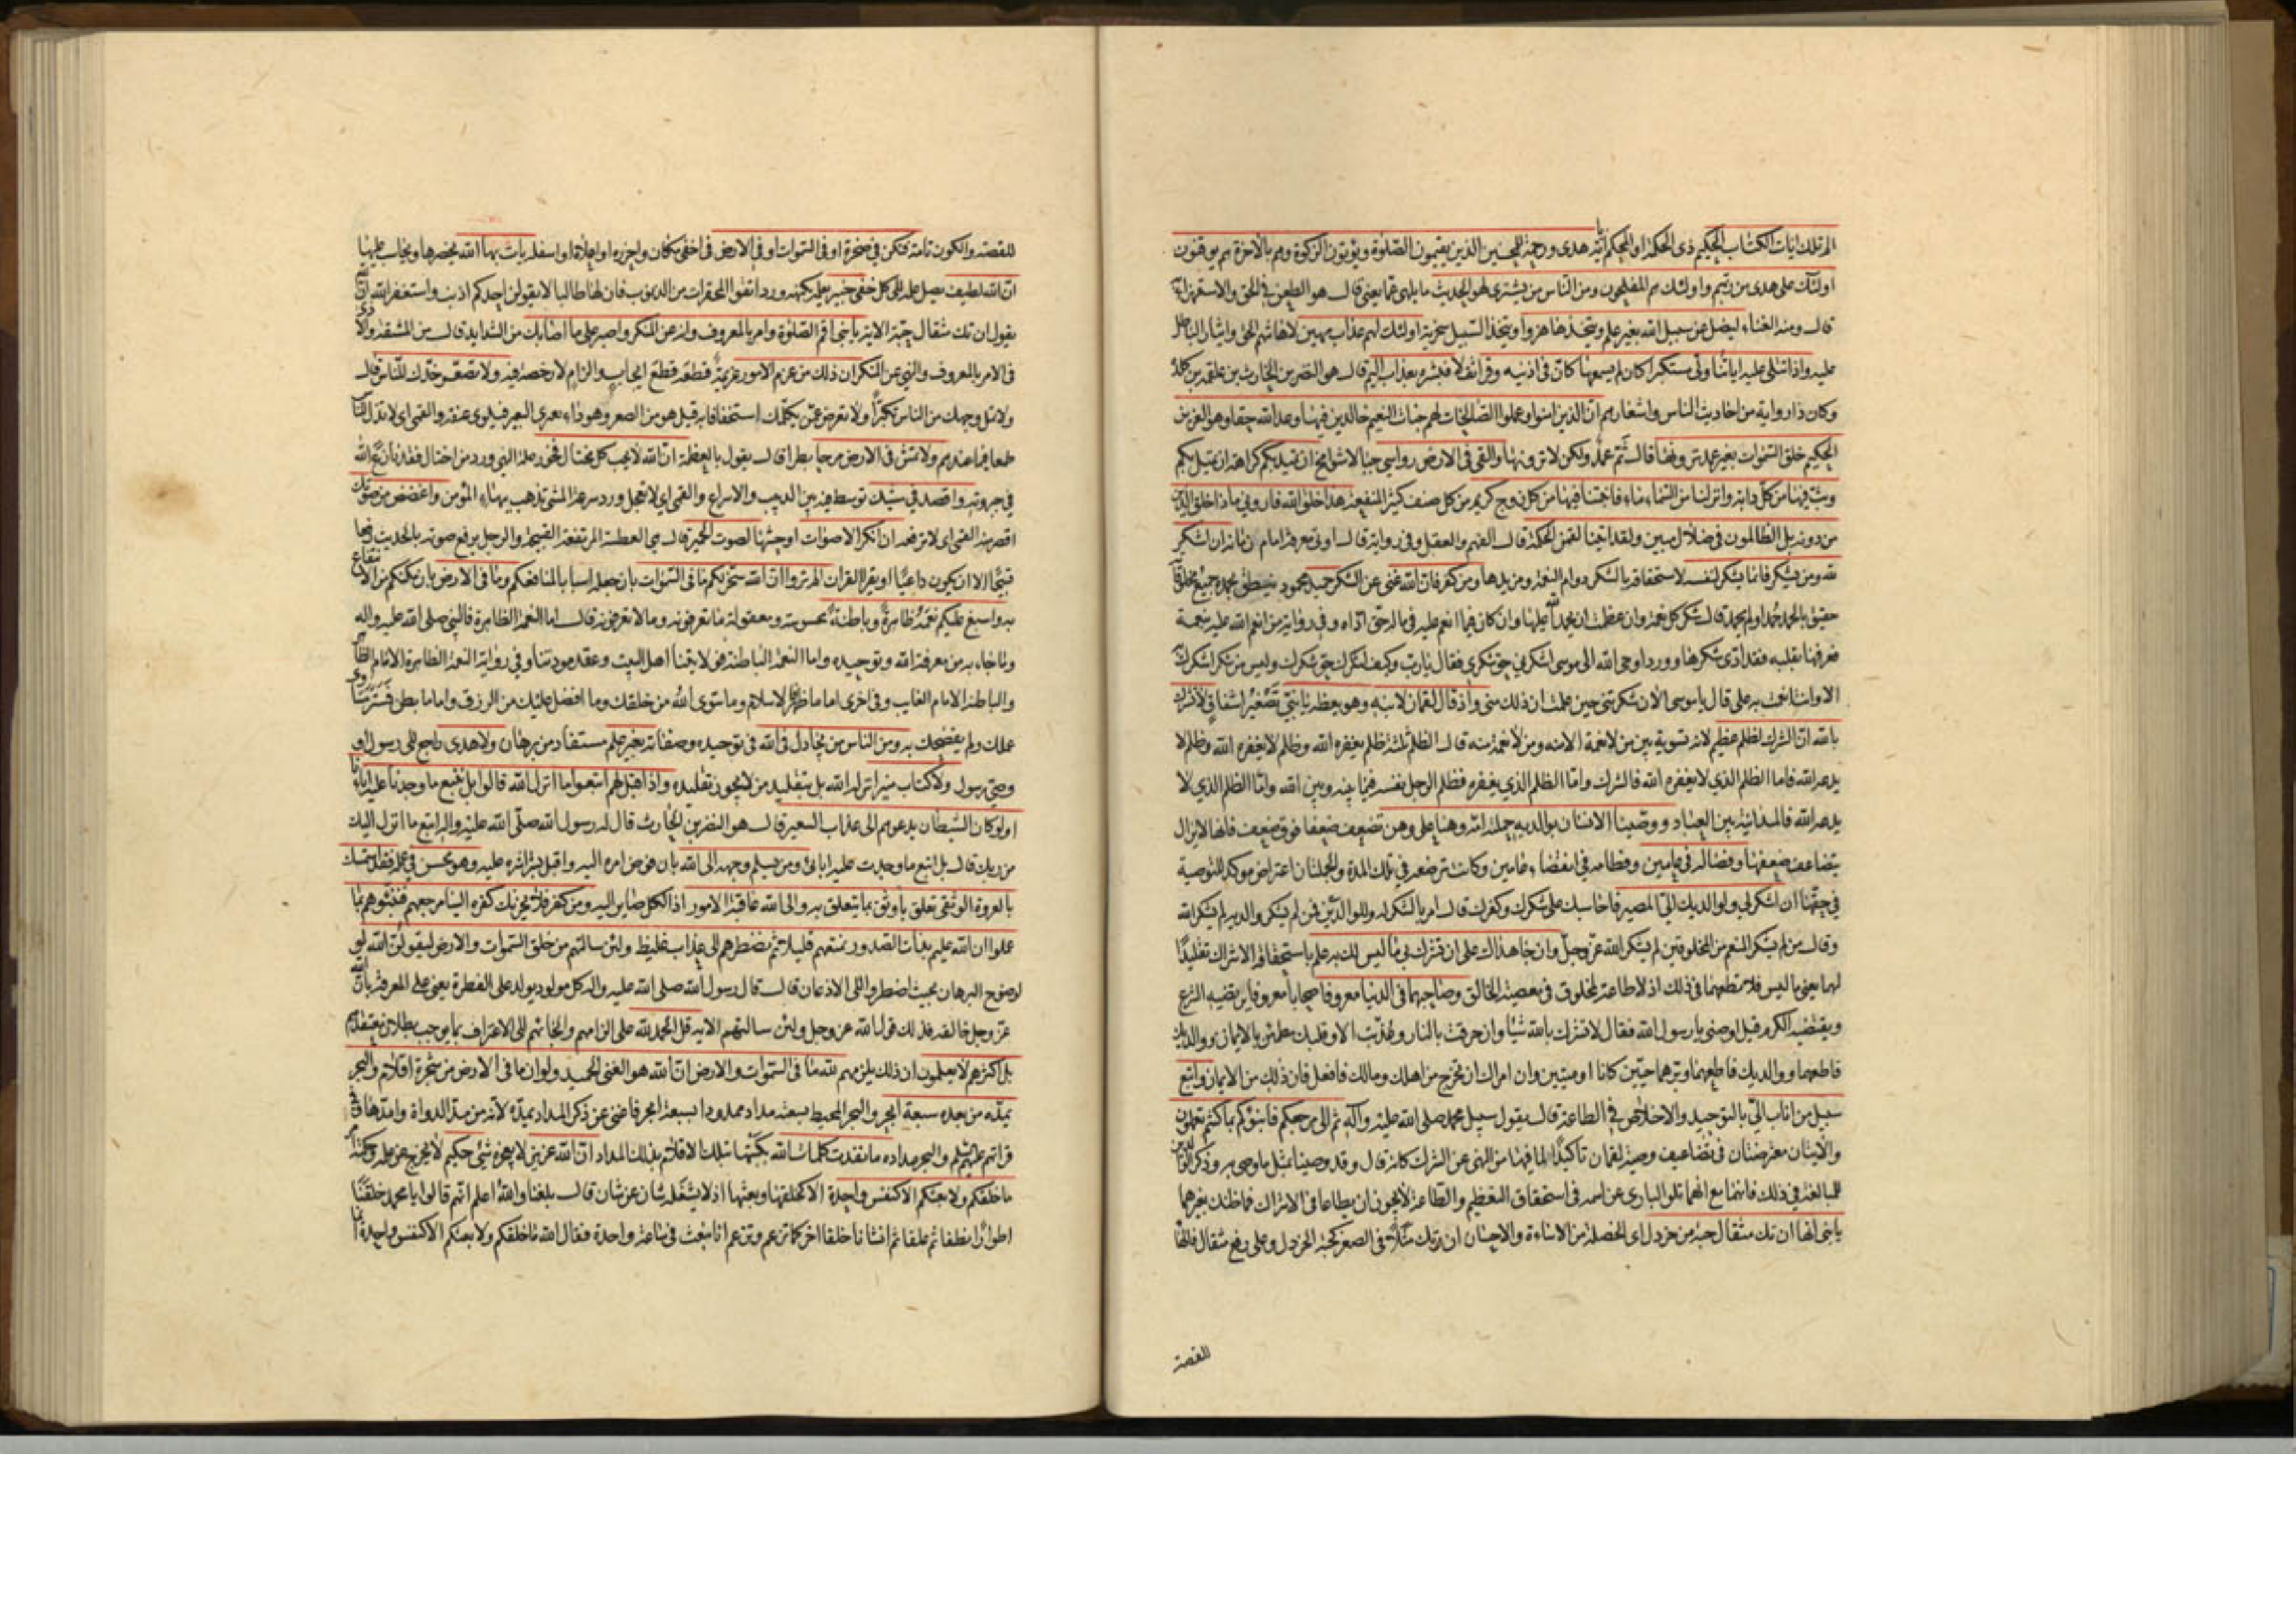 الم تلك ايات الكتاب الحكيم ذى الحكمة او المحكم آياته هدى ورحمة للمحسنين الذين يقيمون الصلوة ويؤتون الزكوة وهم بالآخرة هم يوقنون
اولئك على هدى من ربهم واولئك هم المفلحون ومن الناس من يشترى لهو الحديث ما يلهى عما يعنى قال هو الطعن فى الحق والاستهزاء به
قال ومنه الغناء ليضل عن سبيل الله بغير علم ويتخذها هزوا ويتخذ السبيل سخرية اولئك لهم عذاب مهين لاهانتهم الحق وايثار الباطل
عليه واذا تتلى عليه اياتنا ولى مستكبرا كان لم يسمعها كان فى اذنيه وقرا ثقلا فبشره بعذاب اليم قال هو النضر بن الحارث بن علقمة بن كلدة
وكان ذا رواية من احاديث الناس واشعارهم ان الذين امنوا وعملوا الصالحات لهم جنات النعيم خالدين فيها وعد الله حقا وهو العزيز
الحكيم خلق السموات بغير عمد ترونها قال ثم عمد ولكن لا ترونها والقى فى الارض رواسى جبالا شوامخ ان تميد بكم كراهة ان تميل بكم
وبث فيها من كل دابة وانزلنا من السماء ماء فانبتنا فيها من كل زوج كريم من كل صنف كثير المنفعة هذا خلق الله فارونى ماذا خلق الذين
من دونه بل الظالمون فى ضلال مبين ولقد اتينا لقمن الحكمة قال الفهم والعقل وفى رواية قال اوتى معرفة امام زمانه ان اشكر
لله ومن يشكر فانما يشكر لنفسه لاستحقاقه بالشكر دوام النعمة ومزيدها ومن كفر فان الله غنى عن الشكر حميد محمود ينطق بحمده جميع مخلوقاته
حقيق بالحمد حمد او لم يحمد قال شكر كل نعمة وان عظمت ان يحمد الله عليها وان كان فيما انعم عليه فى ماله حق اداه وفى رواية من انعم الله عليه بنعمة
فعرفها بقلبه فقد ادى شكرها وورد اوحى الله الى موسى اشكرنى حق شكرى فقال يا رب وكيف اشكرك حق شكرك وليس من شكر اشكرك به
الا وانت انعمت به على قال يا موسى الان شكرتنى حين علمت ان ذلك منى واذ قال لقمان لابنه وهو يعظه يا بنى تصغير اشفاق لا تشرك
بالله ان الشرك لظلم عظيم لانه تسوية بين من لا نعمة الا منه ومن لا نعمة منه قال الظلم ثلثة ظلم يغفره الله وظلم لا يغفره الله وظلم لا
يدعه الله فاما الظلم الذي لا يغفره الله فالشرك واما الظلم الذي يغفره فظلم الرجل نفسه فيما بينه وبين الله واما الظلم الذي لا
يدعه الله فالمداينة بين العباد ووصينا الانسان بوالديه حملته امه وهنا على وهن تضعف ضعفا فوق ضعف فانها لا يزال
يتضاعف ضعفها وفصاله فى عامين وفطامه فى انقضاء عامين وكانت ترضعه فى تلك المدة والجملتان اعتراض مؤكد للتوصية
فى حقها ان اشكر لى ولوالديك الى المصير فاحاسبك على شكرك وكفرك قال امر بالشكر له وللوالدين فمن لم يشكر والديه لم يشكر الله
وقال من لم يشكر المنعم من المخلوقين لم يشكر الله عز وجل وان جاهداك على ان تشرك بى ما ليس لك به علم باستحقاقه الاشراك تقليدا
لهما يعنى ما ليس فلا تطعهما فى ذلك اذ لا طاعة لمخلوق فى معصية الخالق وصاحبهما فى الدنيا معروفا صحابا معروفا يرتضيه الشرع
ويقتضيه الكرم قيل اوصنى يا رسول الله فقال لا تشرك بالله شيئا وان حرقت بالنار وعذبت الا وقلبك مطمئن بالايمان ووالديك
فاطعهما ووالديك فاطعهما وبرهما حيين كانا او ميتين وان امراك ان تخرج من اهلك ومالك فافعل فان ذلك من الايمان واتبع
سبيل من اناب الى بالتوحيد والاخلاص فى الطاعة قال يقول سبيل محمد صلى الله عليه وآله ثم الى مرجعكم فانبئكم بما كنتم تعملون
والآيتان معترضتان فى تضاعيف وصية لقمان تاكيدا لما فيها من النهى عن الشرك كانه قال وقد وصينا بمثل ما وصى به وذكر الوالدين
للمبالغة فى ذلك فانهما مع انهما تلو البارى عز اسمه فى استحقاق التعظيم والطاعة لا يجوز ان يطاعا فى الاشراك فما ظنك بغيرهما
يا بنى انها ان تك مثقال حبة من خردل اى الخصلة من الاساءة والاحسان ان تك مثلا فى الصغر كحبة الخردل وعلى رفع مثقال فالهاء
للقصة
للقصة والكون تامة فتكن فى صخرة او فى السموات او فى الارض فى اخفى مكان واحرزه او اعلاه او اسفله يأت بها الله يحضرها ويحاسب عليها
ان الله لطيف يصل علمه الى كل خفى خبير يعلم كنهه ورد اتقوا المحقرات من الذنوب فان لها طالبا لا يقولن احدكم اذنب واستغفر الله ان الله
يقول ان تك مثقال حبة الاية يا بنى اقم الصلوة وامر بالمعروف وانه عن المنكر واصبر على ما اصابك من الشدايد قال من المشقة والاذى
فى الامر بالمعروف والنهى عن المنكر ان ذلك من عزم الامور عزيمة قطعه قطع ايجاب والزام لا رخصة فيه ولا تصعر خدك للناس قال
ولا تمل وجهك من الناس تكبرا ولا تعرض عمن يكلمك استخفافا به قيل هو من الصعر وهو داء يعترى البعير فيلوى عنقه والقمى اى لا تذل للناس
طمعا فيما عندهم ولا تمش فى الارض مرحا بطرا قال يقول بالعظمة ان الله لا يحب كل مختال فخور علة النهى وورد من اختال فقد نازع الله
فى جبروته واقصد فى مشيك توسط فيه بين الدبيب والاسراع والقمى اى لا تعجل وورد سرعة المشى تذهب ببهاء المؤمن واغضض من صوتك
اقصر منه القمى اى لا ترفعه ان انكر الاصوات اوحشها لصوت الحمير قال هى العطسة المرتفعة القبيحة والرجل يرفع صوته بالحديث رفعا
قبيحا الا ان يكون داعيا او يقرا القران الم تروا ان الله سخر لكم ما فى السموات بان جعله اسبابا لمنافعكم وما فى الارض بان مكنكم من الانتفاع
به واسبغ عليكم نعمه ظاهرة وباطنة محسوسة ومعقولة ما تعرفونه وما لا تعرفونه قال اما النعمة الظاهرة فالنبى صلى الله عليه واله
وما جاء به من معرفة الله وتوحيده واما النعمة الباطنة فولايتنا اهل البيت وعقد مودتنا وفى رواية النعمة الظاهرة الامام الظاهر
والباطنة الامام الغايب وفى اخرى اما ما ظهر فالاسلام وما سوى الله من خلقك وما افضل عليك من الرزق واما ما بطن فستر مساوى
عملك ولم يفضحك به ومن الناس من يجادل فى الله فى توحيده وصفاته بغير علم مستفاد من برهان ولا هدى راجع الى رسول او
وصى رسول ولا كتاب منير انزله الله بل بتقليد من لا يجوز تقليده واذا قيل لهم اتبعوا ما انزل الله قالوا بل نتبع ما وجدنا عليه اباءنا
اولو كان الشيطان يدعوهم الى عذاب السعير قال هو النضر بن الحارث قال له رسول الله صلى الله عليه واله اتبع ما انزل اليك
من ربك قال بل اتبع ما وجدت عليه ابائى ومن يسلم وجهه الى الله بان فوض امره اليه واقبل بشراشره عليه وهو محسن فى عمله فقد استمسك
بالعروة الوثقى تعلق باوثق ما يتعلق به والى الله عاقبة الامور اذ الكل صاير اليه ومن كفر فلا يحزنك كفره الينا مرجعهم فننبئهم بما
عملوا ان الله عليم بذات الصدور نمتعهم قليلا ثم نضطرهم الى عذاب غليظ ولئن سالتهم من خلق السموات والارض ليقولن الله
لوضوح البرهان بحيث اضطروا الى الاذعان قال قال رسول الله صلى الله عليه واله كل مولود يولد على الفطرة يعنى على المعرفة بان الله
عز وجل خالقه فذلك قول الله عز وجل ولئن سالتهم الاية قل الحمد لله على الزامهم والجائهم الى الاعتراف بما يوجب بطلان معتقدهم
بل اكثرهم لا يعلمون ان ذلك يلزمهم لله ما فى السموات والارض ان الله هو الغنى الحميد ولو ان ما فى الارض من شجرة اقلام والبحر
يمده من بعده سبعة ابحر والبحر المحيط بسعته مدادا ممدودا بسبعة ابحر فاغنى عن ذكر المداد يمده لانه من مد الدواة وامدها
قرائتهم عليهم السلم والبحر مداده ما نفدت كلمات الله بكتبها بتلك الاقلام بذلك المداد ان الله عزيز لا يعجزه شئ حكيم لا يخرج عن علمه وحكمته امر
ما خلقكم ولا بعثكم الا كنفس واحدة الا كخلقها وبعثها اذ لا يشغله شان عن شان قال بلغنا والله اعلم انهم قالوا يا محمد خلقنا
اطوارا نطفا ثم علقا ثم انشانا خلقا اخر كما تزعم وتزعم انا نبعث فى ساعة واحدة فقال الله ما خلقكم ولا بعثكم الا كنفس واحدة